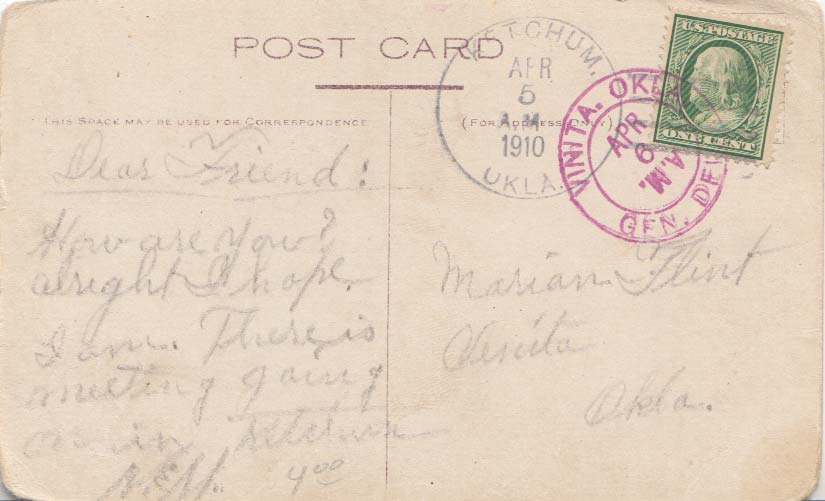 POST CARD
KETCHUM,
APR
5
A.M.
1910
OKLA.
VINITA. OKLA.
APR
6
A.M.
GEN. DEL
U.S. POSTAGE
ONE CENT
THIS SPACE MAY BE USED FOR CORRESPONDENCE
(FOR ADDRESS ONLY)
Dear Friend:
How are you?
alright I hope.
I am. There is
meeting going
on in Ketchum
Marian Flint
Vinita
Okla.